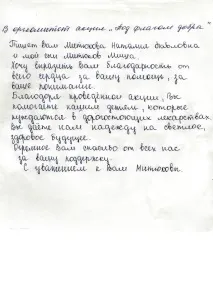 В оргкомитет акции „Под флагом добра"
Пишет вам Митюкова Наталия Яковлевна
и мой сын Митюков Миша.
Хочу выразить вам благодарность от
всего сердца за вашу помощь, за
ваше понимание.
Благодаря проведённой акции, Вы
помогаете нашим детям, которые
нуждаются в дорогостоящих лекарствах.
Вы даёте нам надежду на светлое,
здоровое будущее.
Огромное Вам спасибо от всех нас
за вашу поддержку.
С уважением к Вам Митюковы.